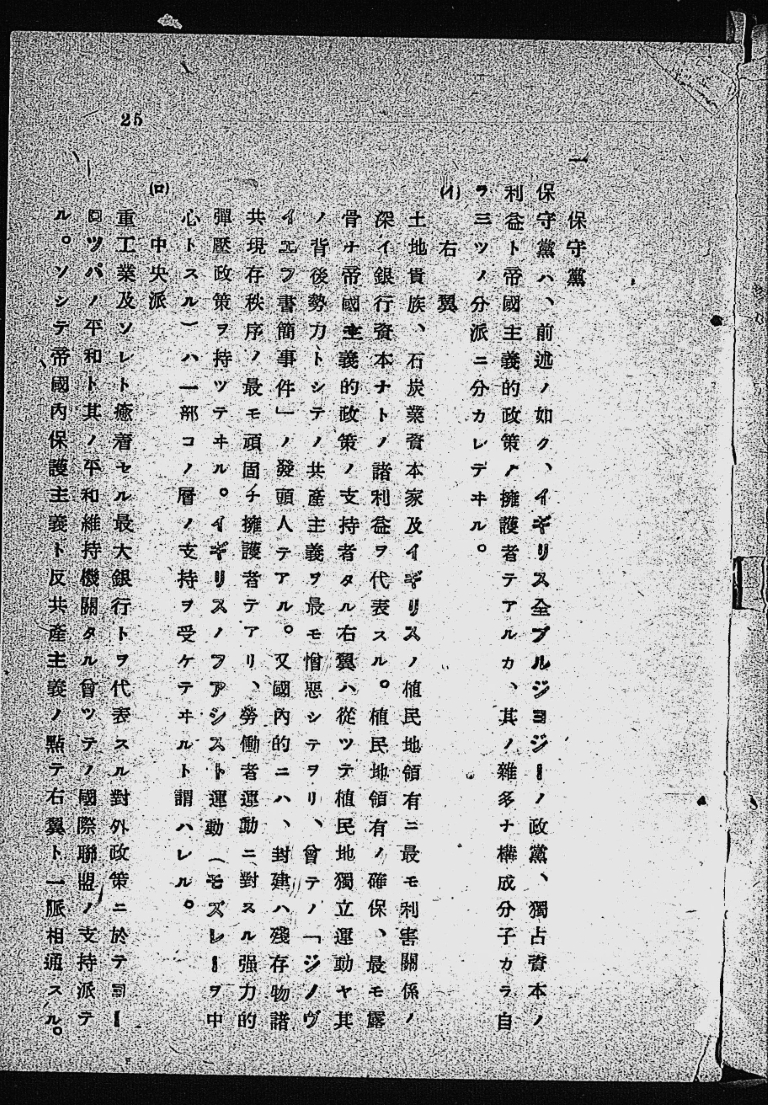 25
一
保守黨
保守黨ハ、前述ノ如ク、イギリス全ブルジヨジーノ政黨、獨占資本ノ
利益ト帝國主義的政策ノ擁護者テアルカ、其ノ雜多ナ構成分子カラ自
ラ三ツノ分派ニ分カレテヰル。
(イ) 右翼
土地貴族、石炭業資本家及イギリスノ植民地領有ニ最モ利害關係ノ
深イ銀行資本ナトノ諸利益ヲ代表スル。植民地領有ノ確保、最モ露
骨ナ帝國主義的政策ノ支持者タル右翼ハ從ツテ植民地獨立運動ヤ其
ノ背後勢力トシテノ共產主義ヲ最モ憎惡シテヲリ、曾テノ「ジノヴ
イエフ書簡事件」ノ發頭人テアル。又國內的ニハ、封建ハ殘存物諸
共現存秩序ノ最モ頑固チ擁護者テアリ、勞働者運動ニ對スル强力的
彈壓政策ヲ持ツテヰル。イギリスノフアシスト運動（モズレーヲ中
心トスル）ハ一部コノ層ノ支持ヲ受ケテヰルト謂ハレル。
(ロ) 中央派
重工業及ソレト癒着セル最大銀行トヲ代表スル對外政策ニ於テヨー
ロツパノ平和ト其ノ平和維持機關タル曾ツテノ國際聯盟ノ支持派テ
ル。ソシテ帝國內保護主義ト反共產主義ノ點テ右翼ト一脈相通スル。